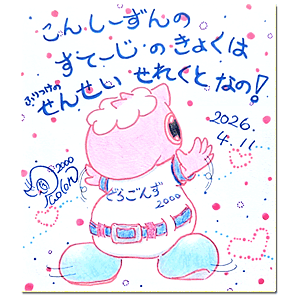 こんしーずんの
すてーじのきょくは
ふりつけの
せんせいせれくとなの!
2026.
4.11
2000
どろごんず
2000